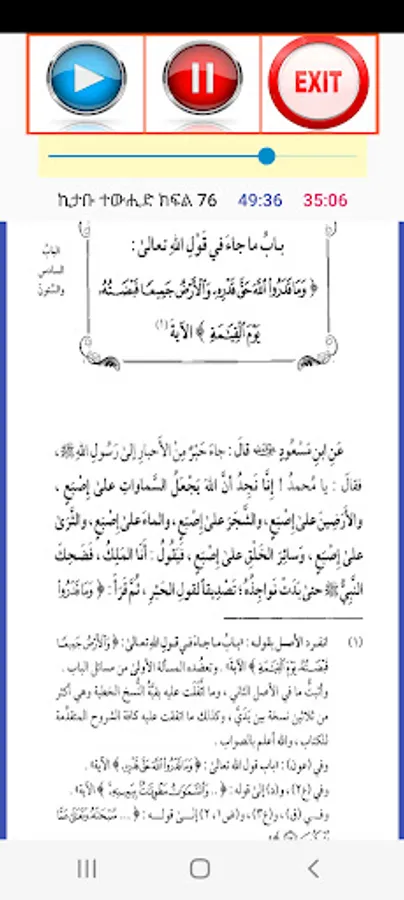 EXIT
ኪታቡ ተውሒድ ክፍል 76 49:36 35:06
الباب
السادس
والستون
بابُ ما جاءَ في قَولِ اللهِ تعالىٰ :
﴿ وَمَا قَدَرُوا۟ ٱللَّهَ حَقَّ قَدْرِهِۦ وَٱلْأَرْضُ جَمِيعًا قَبْضَتُهُۥ
يَوْمَ ٱلْقِيَـٰمَةِ ﴾ الآيةَ (١)
عَنِ ابنِ مَسْعُودٍ رضي الله عنه قالَ : جاءَ حَبْرٌ مِنَ الأَحبارِ إلىٰ رَسُولِ اللهِ ﷺ ،
فقالَ : يا محمدُ ! إنَّا نَجِدُ أنَّ اللهَ يَجْعَلُ السَّماواتِ علىٰ إصْبَعٍ ،
والأَرَضِينَ علىٰ إصْبَعٍ ، والشَّجَرَ علىٰ إصْبَعٍ ، والماءَ علىٰ إصْبَعٍ ، والثَّرَىٰ
علىٰ إصْبَعٍ ، وسائِرَ الخَلْقِ علىٰ إصْبَعٍ ، فَيَقُولُ : أَنَا المَلِكُ ، فَضَحِكَ
النَّبِيُّ ﷺ حتىٰ بَدَتْ نَواجِذُهُ؛ تَصْدِيقاً لقَولِ الحَبْرِ ، ثُمَّ قَرَأَ : ﴿ وَمَا قَدَرُوا۟
(١) انفرد الأصل بقوله : «بابُ ما جاءَ في قَولِ اللهِ تعالىٰ : ﴿ وَٱلْأَرْضُ جَمِيعًا
قَبْضَتُهُۥ يَوْمَ ٱلْقِيَـٰمَةِ ﴾ الآية» . وتعضُده المسألة الأولىٰ من مسائل الباب .
وأثبتُّ ما في الأصل الثاني ، وما اتَّفَقَت عليه بقيَّةُ النُّسخِ الخطية وهي أكثر
من ثلاثين نسخة بين يَدَيَّ ، وكذلك ما اتفقت عليه كافة الشروح المتقدِّمة
للكتاب ، والله أعلم بالصواب .
وفي (عون) : «باب قول الله تعالىٰ : ﴿ وَمَا قَدَرُوا۟ ٱللَّهَ حَقَّ قَدْرِهِ ﴾ الآية» .
وفي (ع٢) ، و(د) إلىٰ قوله : ﴿ .. وَٱلسَّمَـٰوَٰتُ مَطْوِيَّـٰتٌۢ بِيَمِينِهِۦ ﴾ الآية» .
وفي (ق) ، و(ع٣) ، و(ض١ ، ٢) إلىٰ قوله : ﴿ ... سُبْحَـٰنَهُۥ وَتَعَـٰلَىٰ عَمَّا